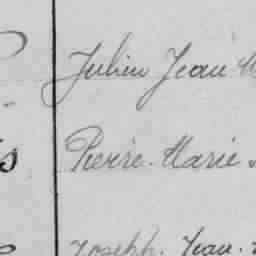 Julien Jean M
Pierre Marie
Joseph Jean